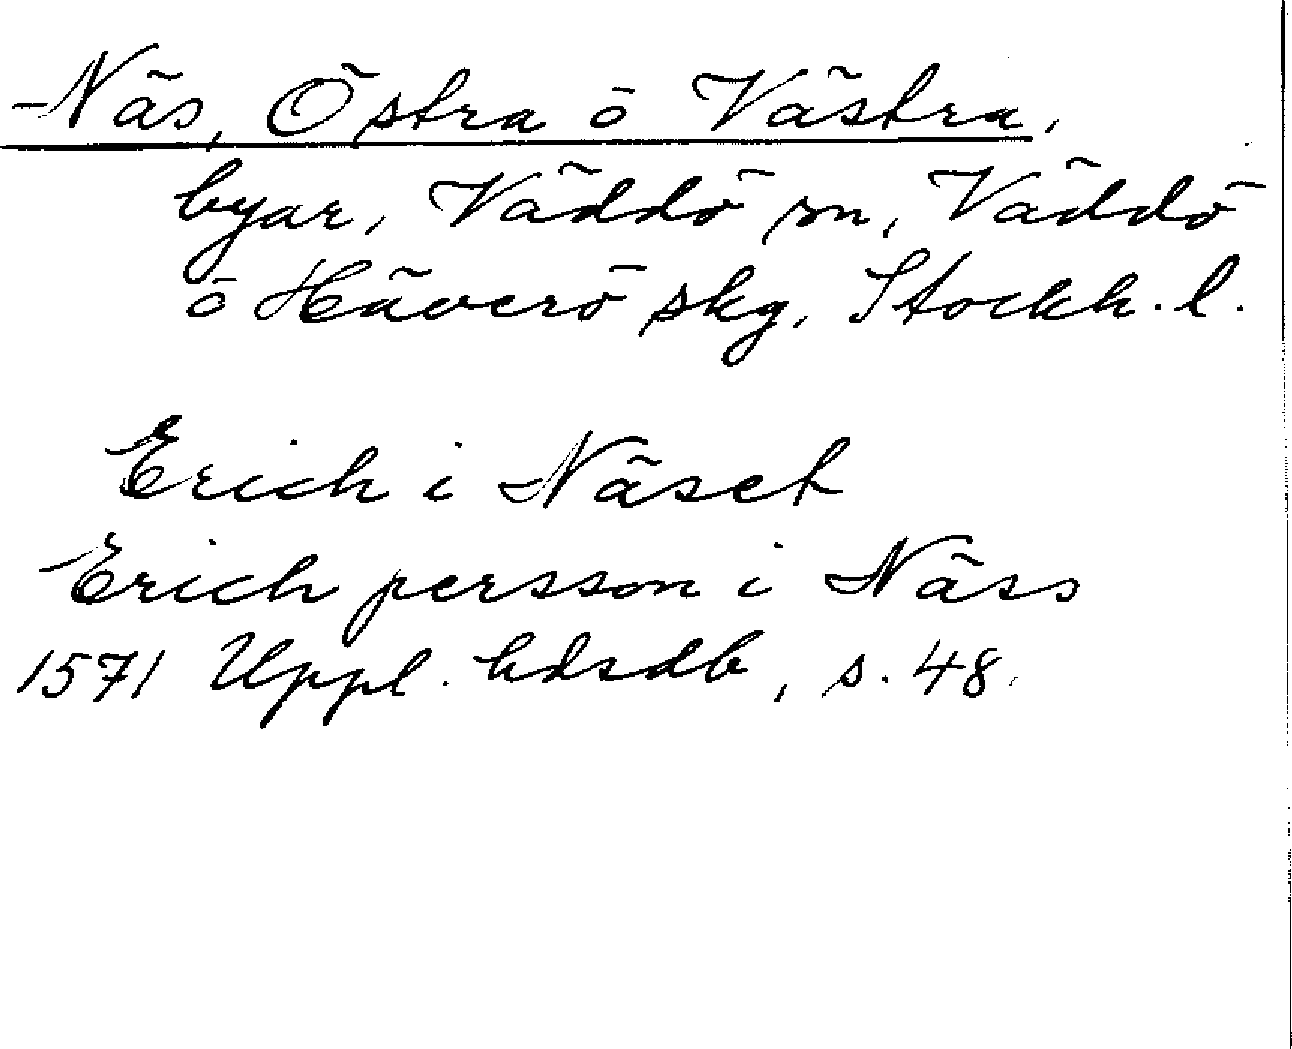 Näs, Östra o Västra,
byar, Väddö sn, Väddö
o Häverö skg, Stockh. l.
Erich i Näset
Erich persson i Näss
1571 Uppl. hdsdb, s. 48.